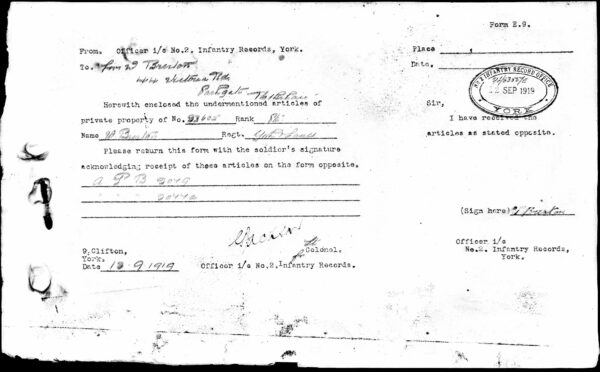 Form E.9.
From. Officer i/c No.2. Infantry Records, York.
To.
44 Victoria
Parkgate
Herewith enclosed the undermentioned articles of
private property of No. Rank
Name W Regt.
Please return this form with the soldier's signature
acknowledging receipt of these articles on the form opposite.
A P B
Colonel.
9, Clifton,
York.
Date 12-9-1919 Officer i/c No.2. Infantry Records.
Place
Date.
INFANTRY RECORD OFFICE
SEP 1919
YORK
Sir,
I have received the
articles as stated opposite.
(Sign here)
Officer i/c
No.2. Infantry Records,
York.